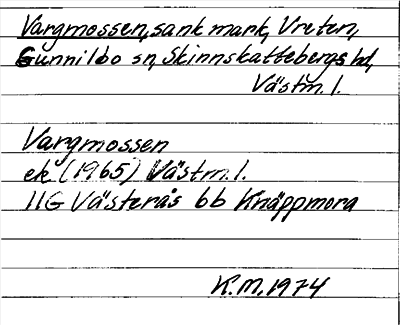 Vargmossen, sank mark, Vreten,
Gunnilbo sn, Skinnskattebergs hd,
Västm. l.
Vargmossen
ek. (1965) Västm. l.
11G Västerås 6b Knäppmora
K.M. 1974